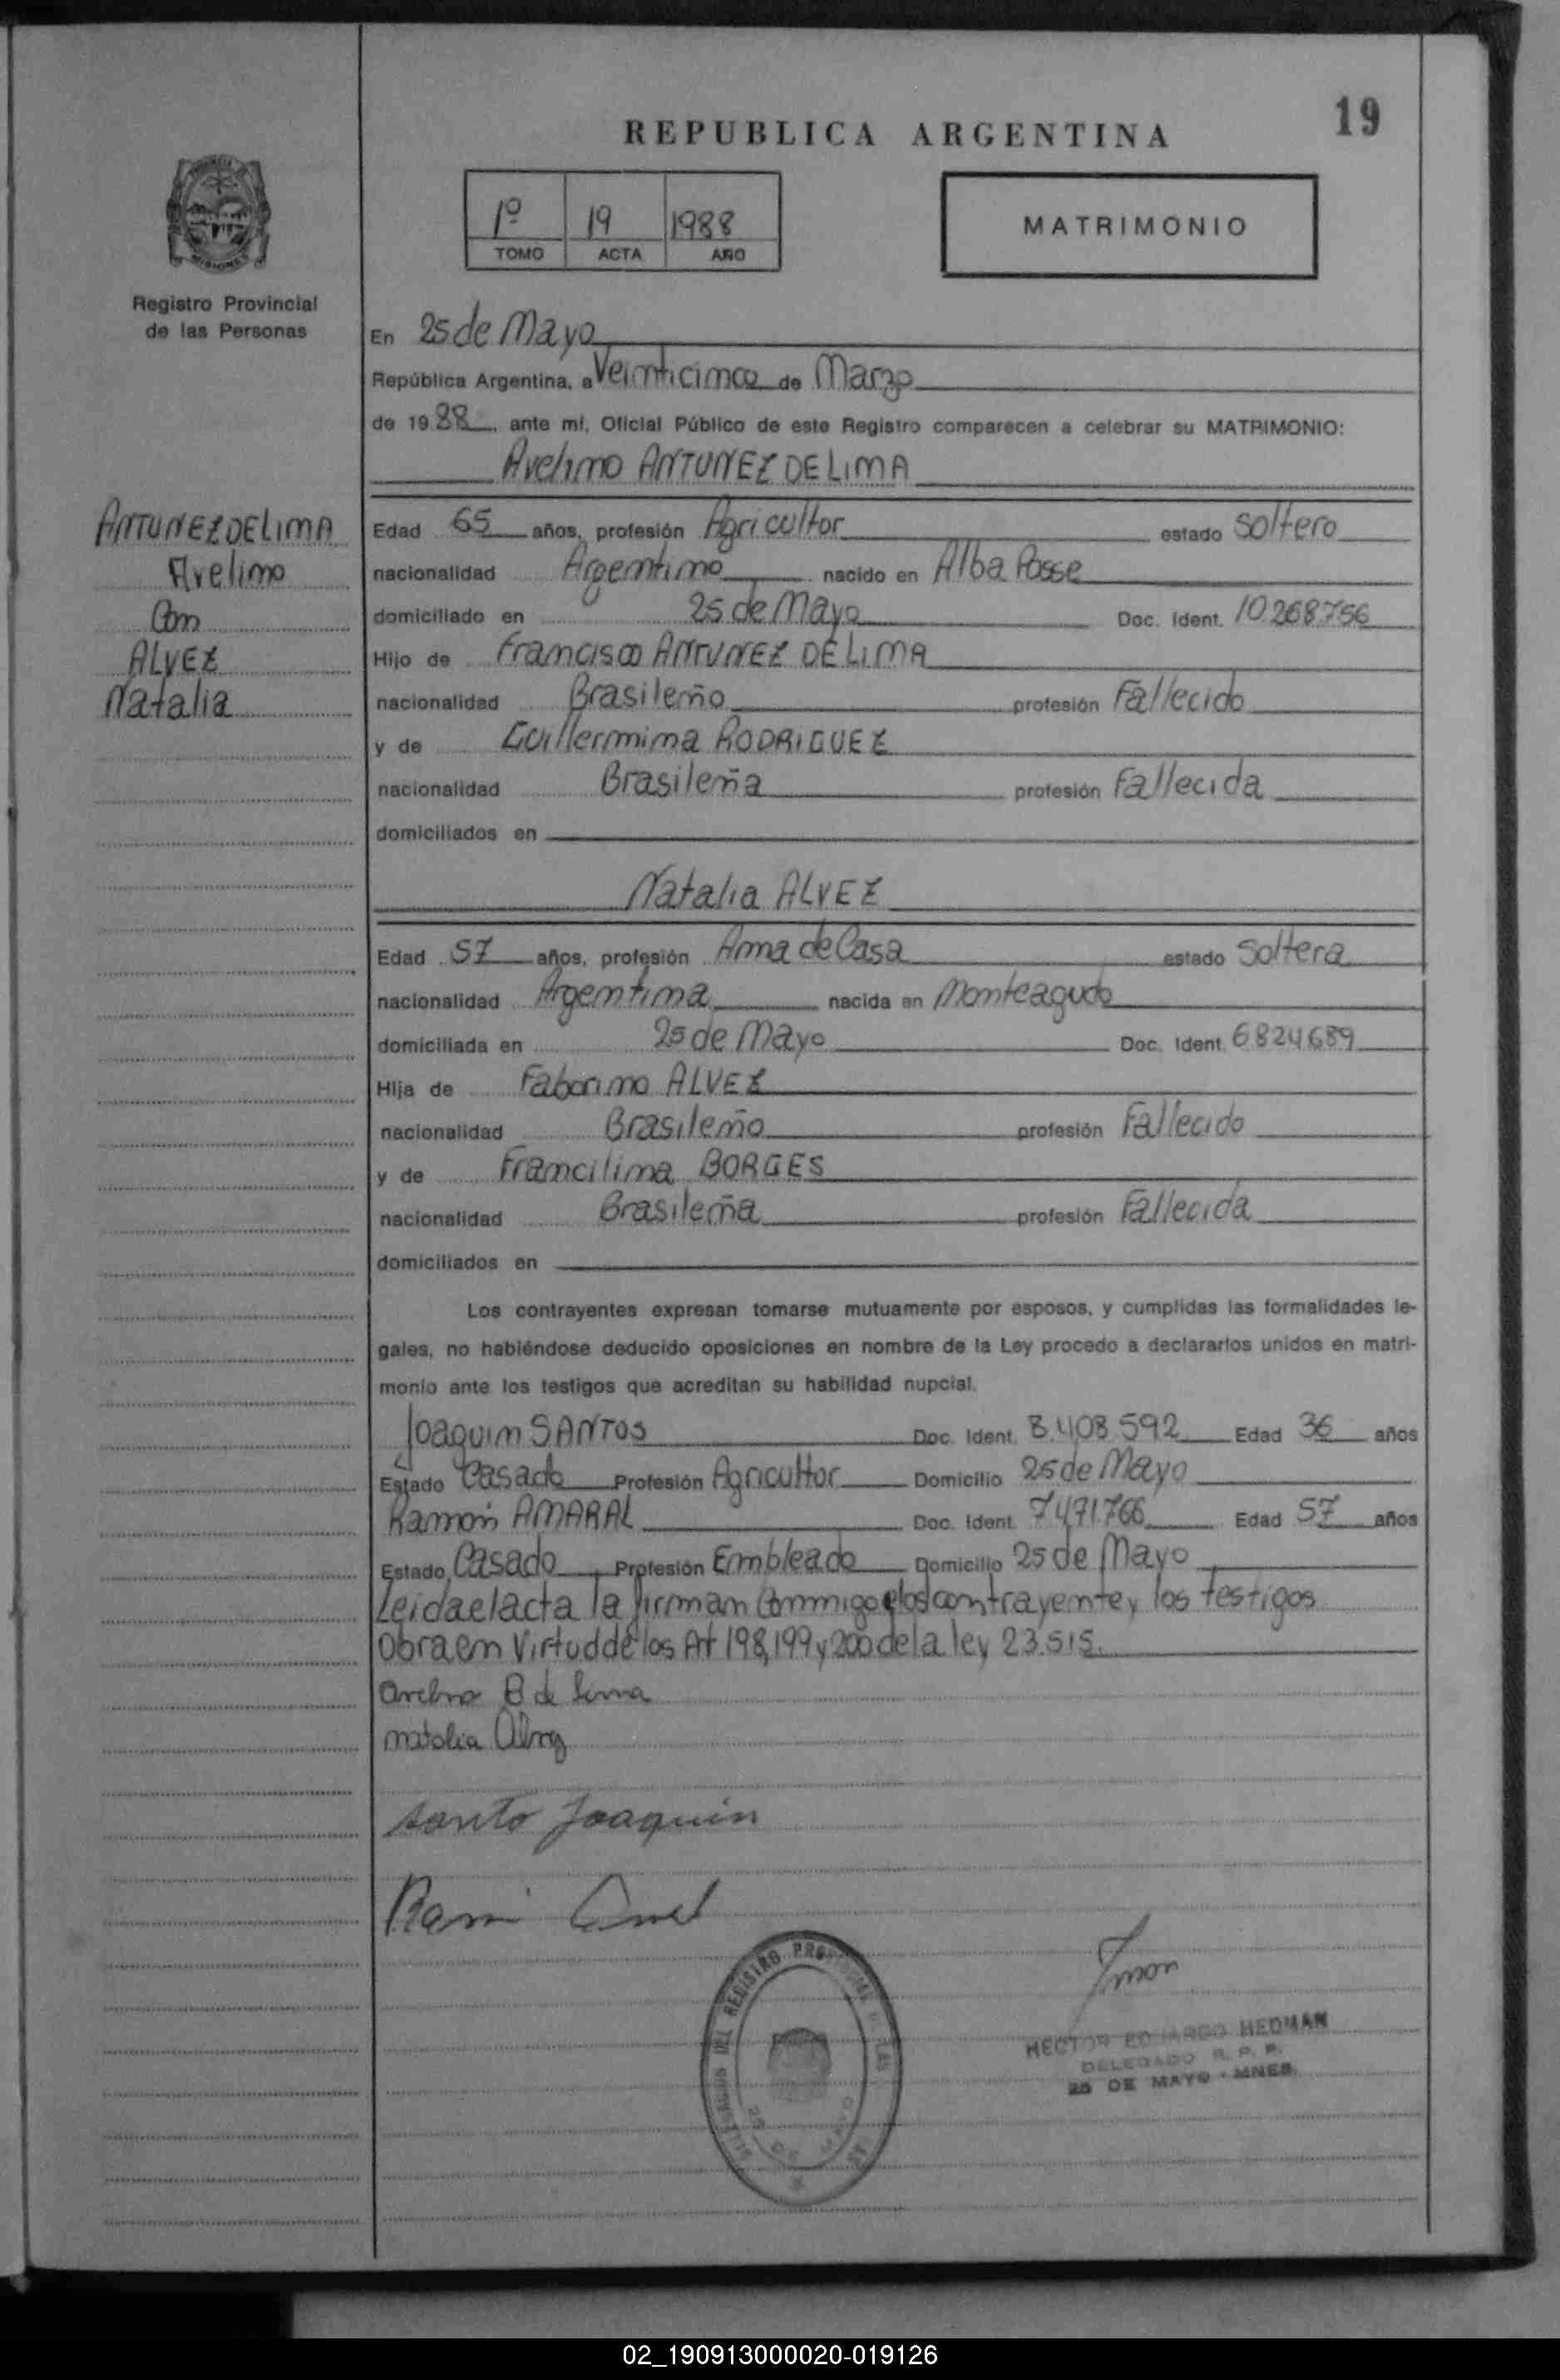 19
REPUBLICA ARGENTINA
1º 19 1988
TOMO ACTA AÑO
MATRIMONIO
Registro Provincial
de las Personas
ANTUNEZ DE LIMA
Avelino
Con
ALVEZ
Natalia
En 25 de Mayo
República Argentina, a Veinticinco de Marzo
de 1988, ante mí, Oficial Público de este Registro comparecen a celebrar su MATRIMONIO:
Avelino ANTUNEZ DE LIMA
Edad 65 años, profesión Agricultor estado Soltero
nacionalidad Argentino nacido en Alba Posse
domiciliado en 25 de Mayo Doc. Ident. 10.268.756
Hijo de Francisco ANTUNEZ DE LIMA
nacionalidad Brasileño profesión Fallecido
y de Guillermina RODRIGUEZ
nacionalidad Brasileña profesión Fallecida
domiciliados en
Natalia ALVEZ
Edad 57 años, profesión Ama de Casa estado Soltera
nacionalidad Argentina nacida en Monteagudo
domiciliada en 25 de Mayo Doc. Ident. 6824689
Hija de Faborino ALVEZ
nacionalidad Brasileño profesión Fallecido
y de Francilina BORGES
nacionalidad Brasileña profesión Fallecida
domiciliados en
Los contrayentes expresan tomarse mutuamente por esposos, y cumplidas las formalidades le-
gales, no habiéndose deducido oposiciones en nombre de la Ley procedo a declararlos unidos en matri-
monio ante los testigos que acreditan su habilidad nupcial.
Joaquin SANTOS Doc. Ident. 8.408.592 Edad 36 años
Estado Casado Profesión Agricultor Domicilio 25 de Mayo
Ramón AMARAL Doc. Ident. 7.471.766 Edad 57 años
Estado Casado Profesión Embleado Domicilio 25 de Mayo
Leida el acta la firman Conmigo los contrayente y los testigos
Obra en Virtud de los Art 198, 199 y 200 de la ley 23.515.
natalia
santo Joaquin
HECTOR EDUARDO HEDMAN
DELEGADO R. P. P.
25 DE MAYO - MNES.
02_190913000020-019126